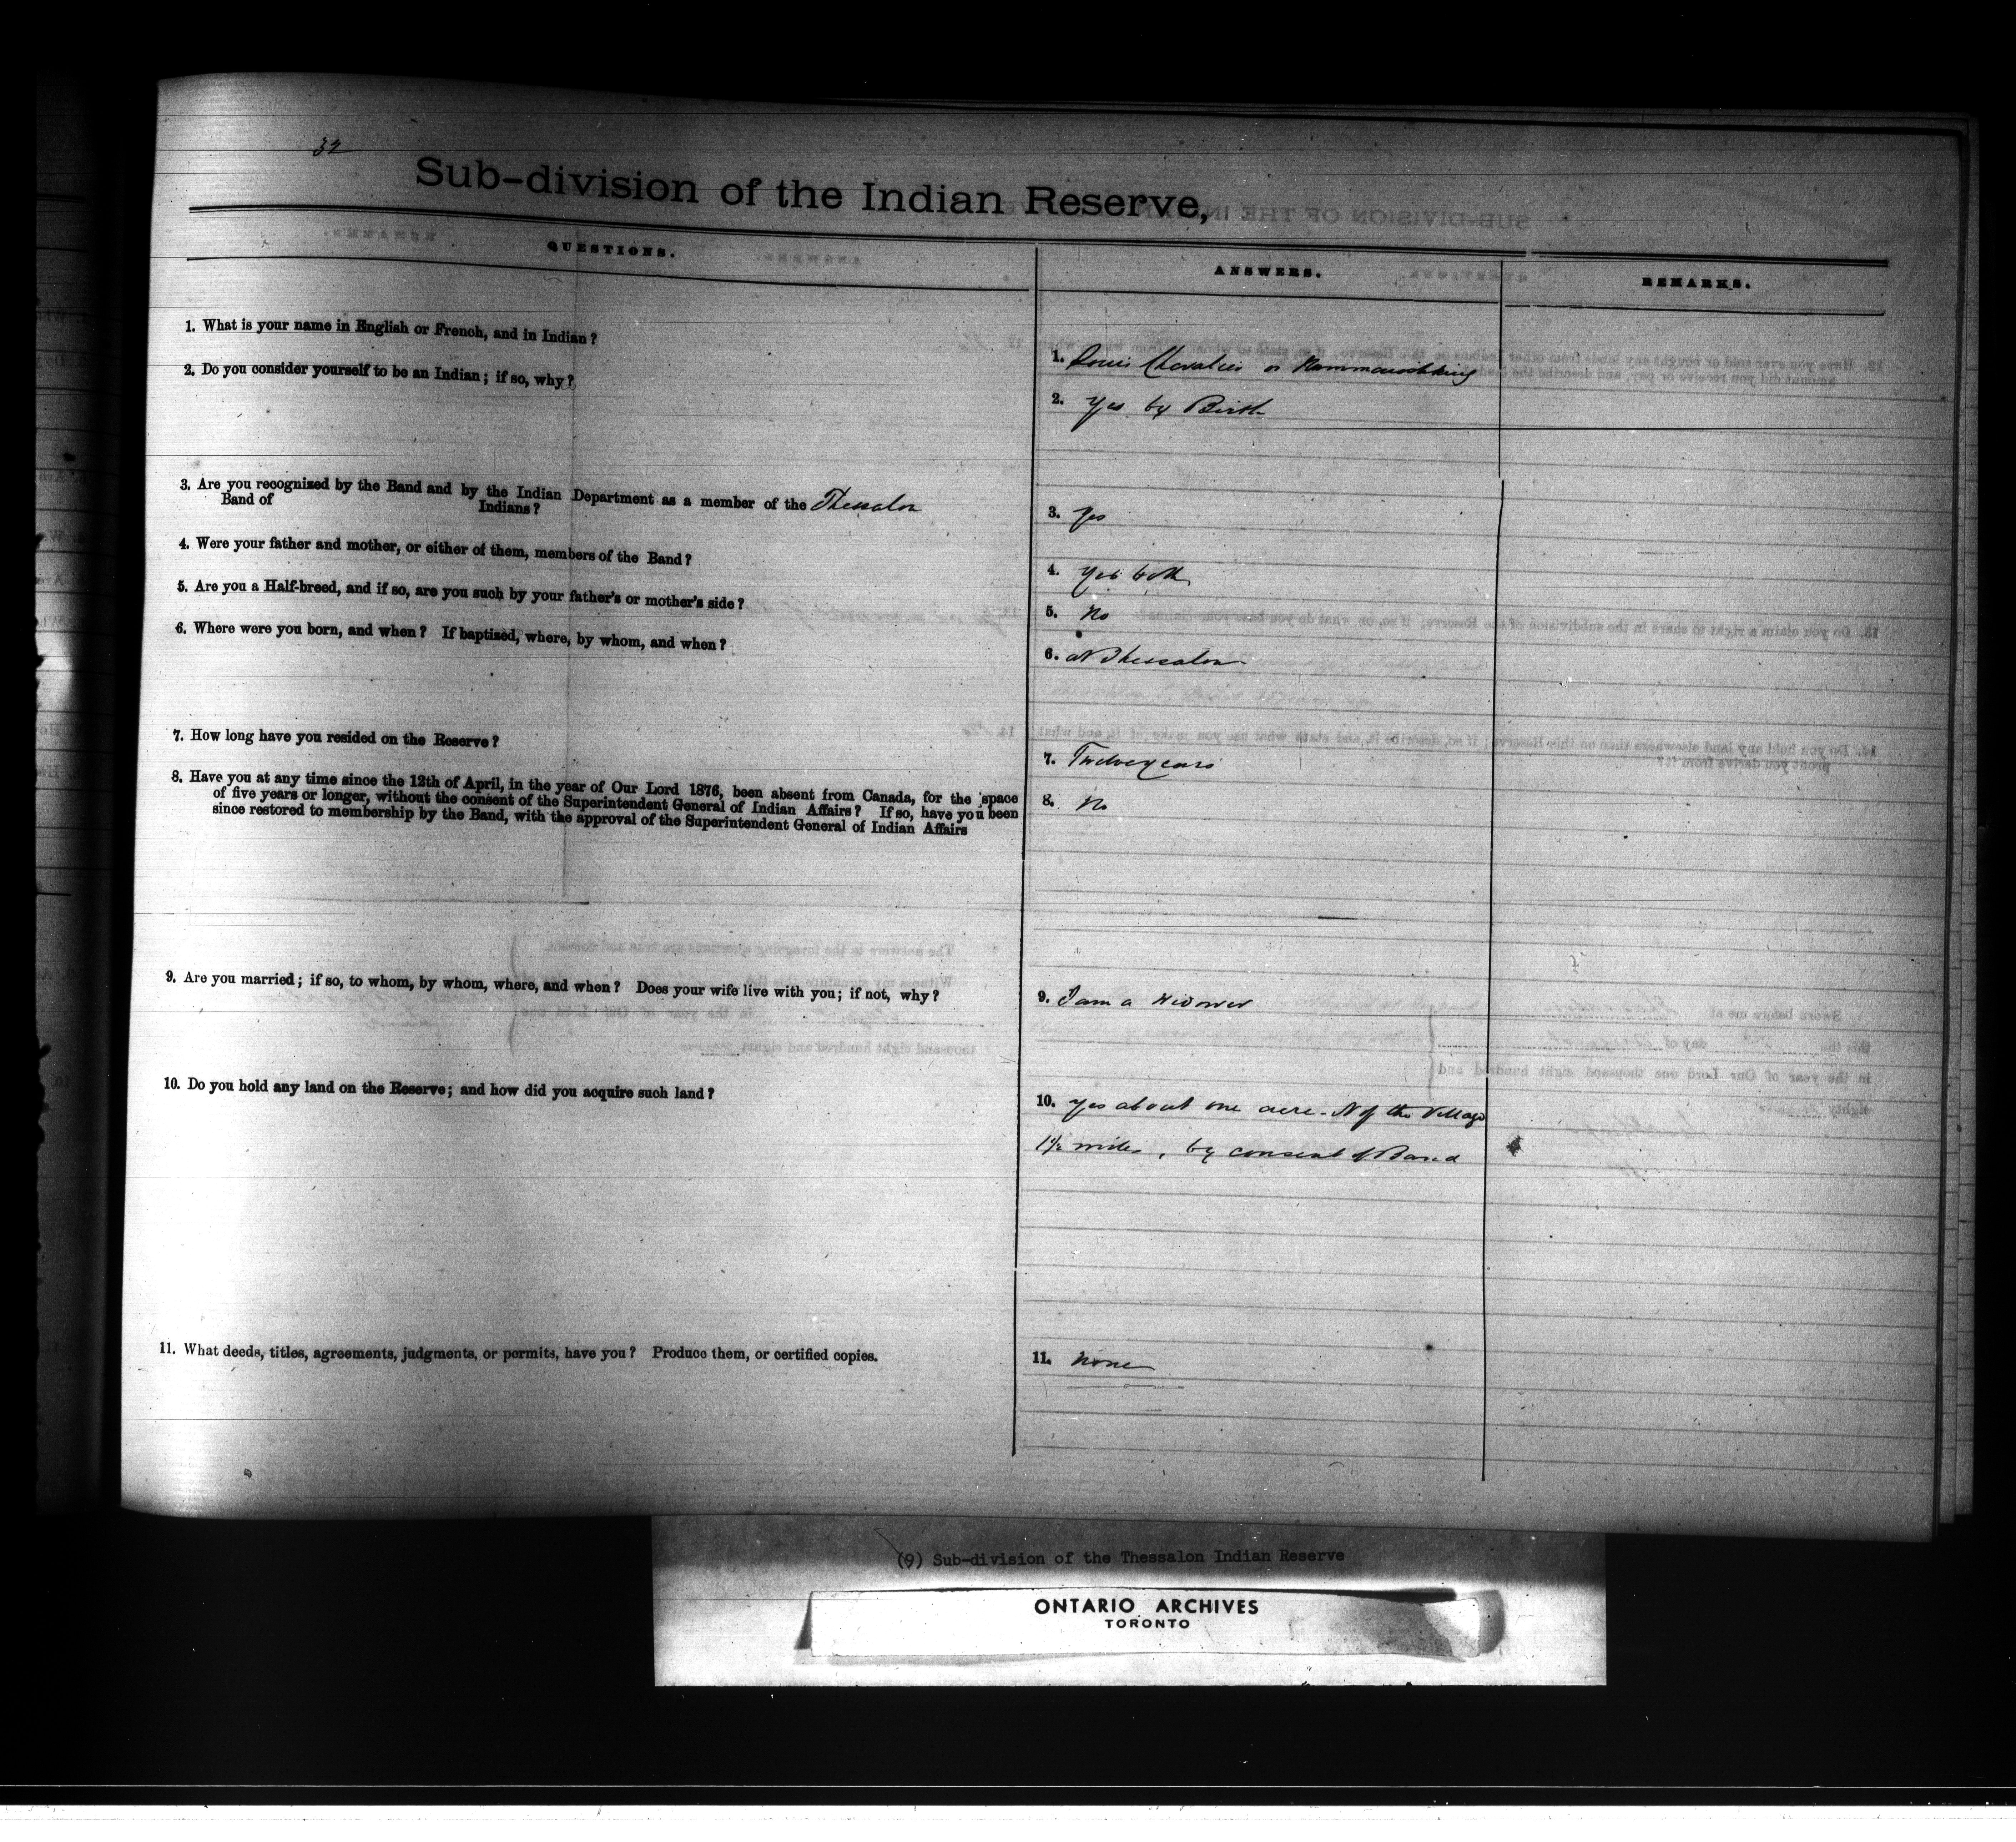 32
Sub-division of the Indian Reserve,
QUESTIONS.
ANSWERS.
REMARKS.
1. What is your name in English or French, and in Indian?
1. Louis Chevalier or
2. Do you consider yourself to be an Indian; if so, why?
2. Yes by Birth
3. Are you recognized by the Band and by the Indian Department as a member of the Thessalon
Band of Indians?
3. Yes
4. Were your father and mother, or either of them, members of the Band?
4. Yes both
5. Are you a Half-breed, and if so, are you such by your father's or mother's side?
5. No
6. Where were you born, and when? If baptized, where, by whom, and when?
6. at Thessalon
7. How long have you resided on the Reserve?
7. Twelve years
8. Have you at any time since the 12th of April, in the year of Our Lord 1876, been absent from Canada, for the space
of five years or longer, without the consent of the Superintendent General of Indian Affairs? If so, have you been
since restored to membership by the Band, with the approval of the Superintendent General of Indian Affairs
8. No
9. Are you married; if so, to whom, by whom, where, and when? Does your wife live with you; if not, why?
9. I am a Widower
10. Do you hold any land on the Reserve; and how did you acquire such land?
10. Yes about one acre - N of the Village
1½ miles, by consent of Band
11. What deeds, titles, agreements, judgments, or permits, have you? Produce them, or certified copies.
11. None
(9) Sub-division of the Thessalon Indian Reserve
ONTARIO ARCHIVES
TORONTO